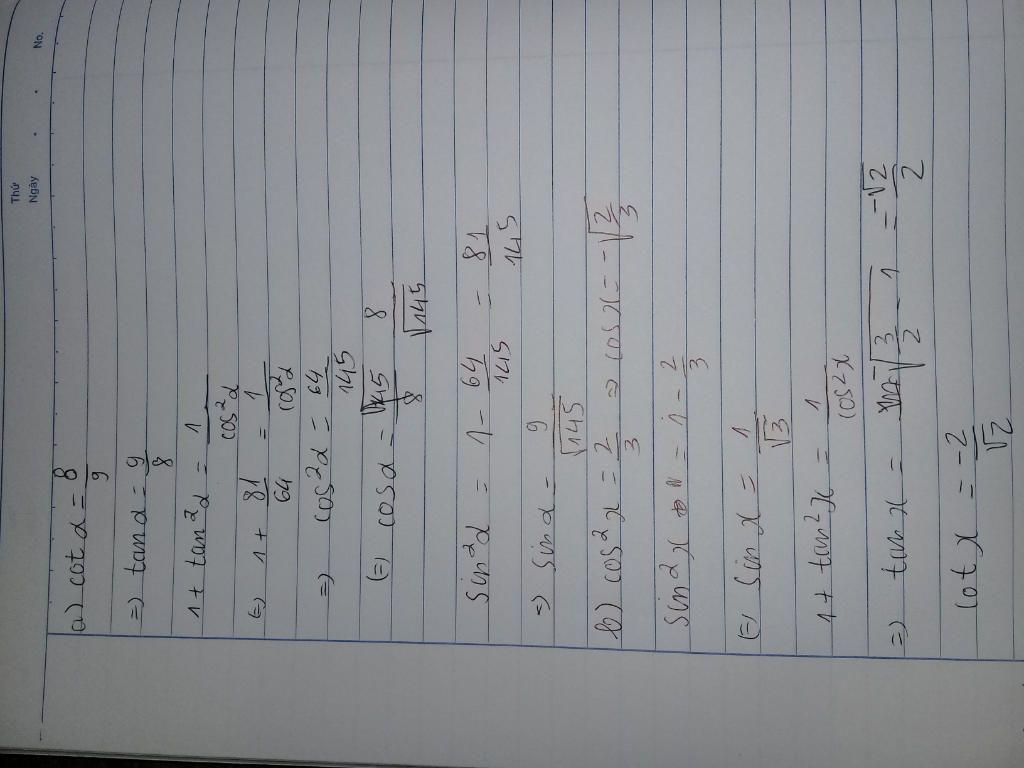 Thứ
Ngày . . No.
a) cot α = 8/9
=) tan α = 9/8
1 + tan²α = 1/cos²α
(=) 1 + 81/64 = 1/cos²α
=) cos²α = 64/145
(=) cos α = 8/√145
sin²α = 1 - 64/145 = 81/145
=) sin α = 9/√145
b) cos²x = 2/3 => cos x = -√2/3
sin²x = 1 - 2/3
(=) sin x = 1/√3
1 + tan²x = 1/cos²x
=) tan x = -√(3/2 - 1) = -√2/2
cot x = -2/√2